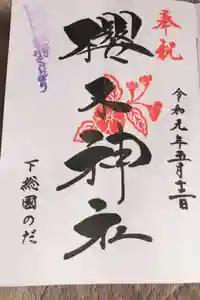 奉祝
令和元年五月十二日
櫻木神社
下総國のだ